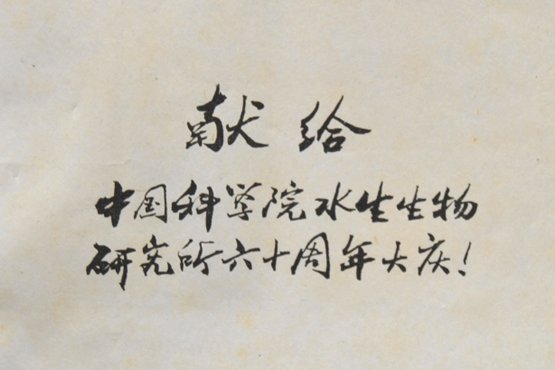 献给
中国科学院水生生物
研究所六十周年大庆！